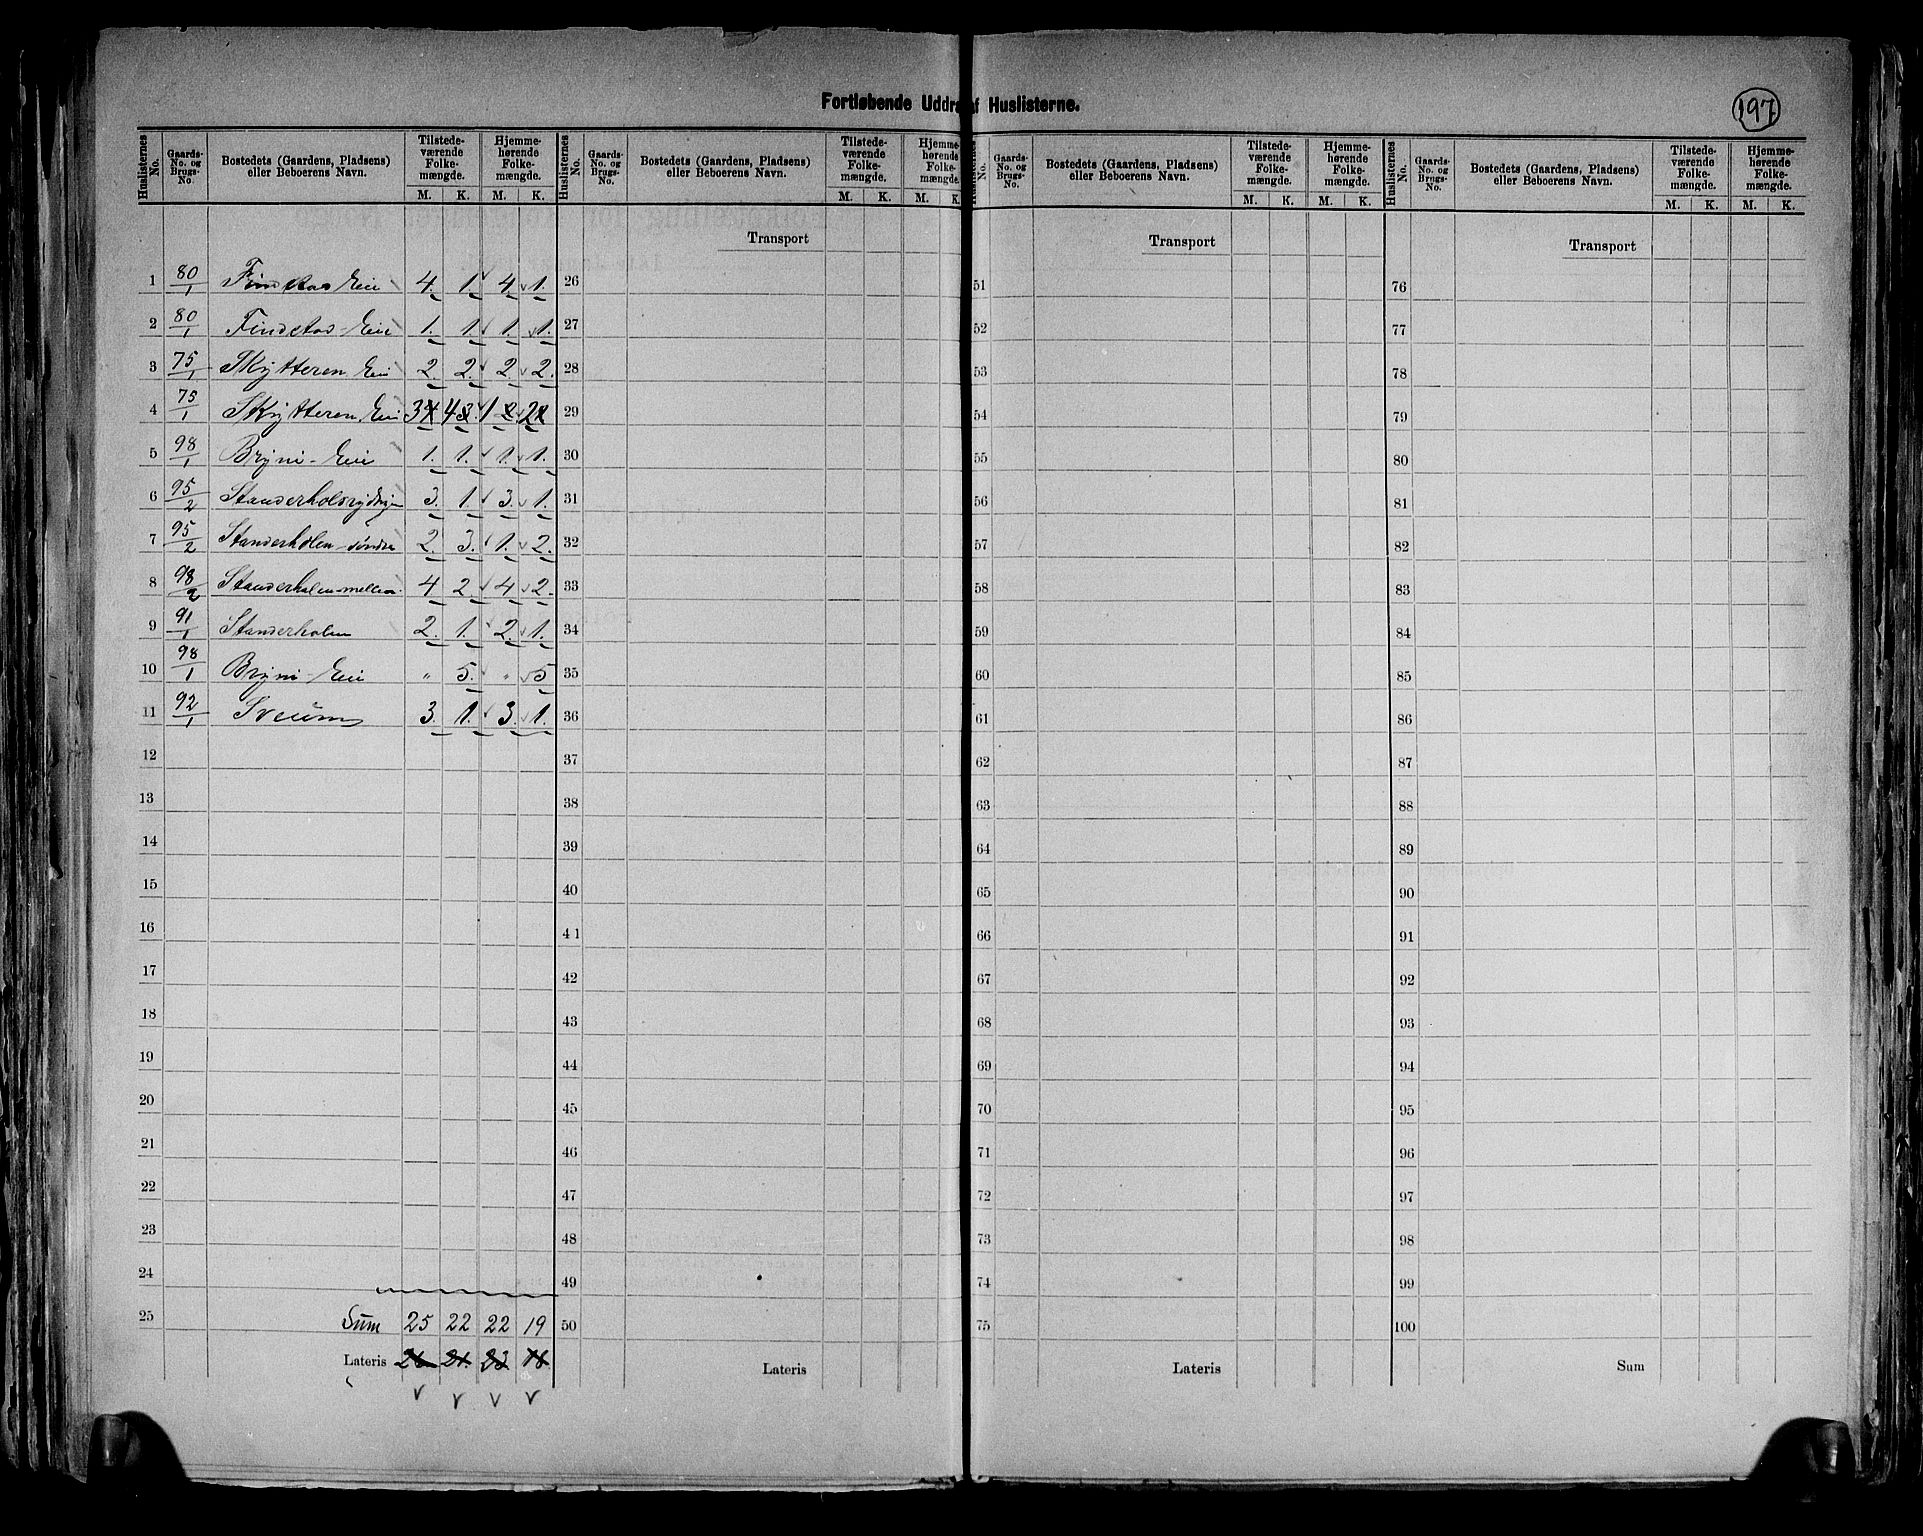 Fortløbende Uddr af Huslisterne.
197
Huslisternes No. Gaards-No. og Brugs-No. Bostedets (Gaardens, Pladsens) eller Beboerens Navn. Tilstedeværende Folkemængde. M. K. Hjemmehørende Folkemængde. M. K.
Huslisternes No. Gaards-No. og Brugs-No. Bostedets (Gaardens, Pladsens) eller Beboerens Navn. Tilstedeværende Folkemængde. M. K. Hjemmehørende Folkemængde. M. K.
Huslisternes No. Gaards-No. og Brugs-No. Bostedets (Gaardens, Pladsens) eller Beboerens Navn. Tilstedeværende Folkemængde. M. K. Hjemmehørende Folkemængde. M. K.
Huslisternes No. Gaards-No. og Brugs-No. Bostedets (Gaardens, Pladsens) eller Beboerens Navn. Tilstedeværende Folkemængde. M. K. Hjemmehørende Folkemængde. M. K.
Transport Transport Transport
1 80/1 Findstad Eie 4. 1. 4. 1. 26 51 76
2 80/1 Findstad-Eie 1. 1. 1. 1. 27 52 77
3 75/1 Skytteren Eie 2. 2. 2. 2. 28 53 78
4 75/1 Skytteren Eie 3 4 1 2 29 54 79
5 98/1 Bryni-Eie 1. 1. 1. 1. 30 55 80
6 95/2 3. 1. 3. 1. 31 56 81
7 95/2 Standerholen søndre 2. 3. 1. 2. 32 57 82
8 98/2 Standerholen mellem 4 2. 4 2. 33 58 83
9 91/1 Standerholen 2. 1. 2. 1. 34 59 84
10 98/1 Bryni-Eie " 5. " 5 35 60 85
11 92/1 Sveum 3. 1. 3. 1. 36 61 86
12 37 62 87
13 38 63 88
14 39 64 89
15 40 65 90
16 41 66 91
17 42 67 92
18 43 68 93
19 44 69 94
20 45 70 95
21 46 71 96
22 47 72 97
23 48 73 98
24 49 74 99
25 Sum 25 22 22 19 50 75 100
Lateris 26 21. 23 18 Lateris Lateris Sum